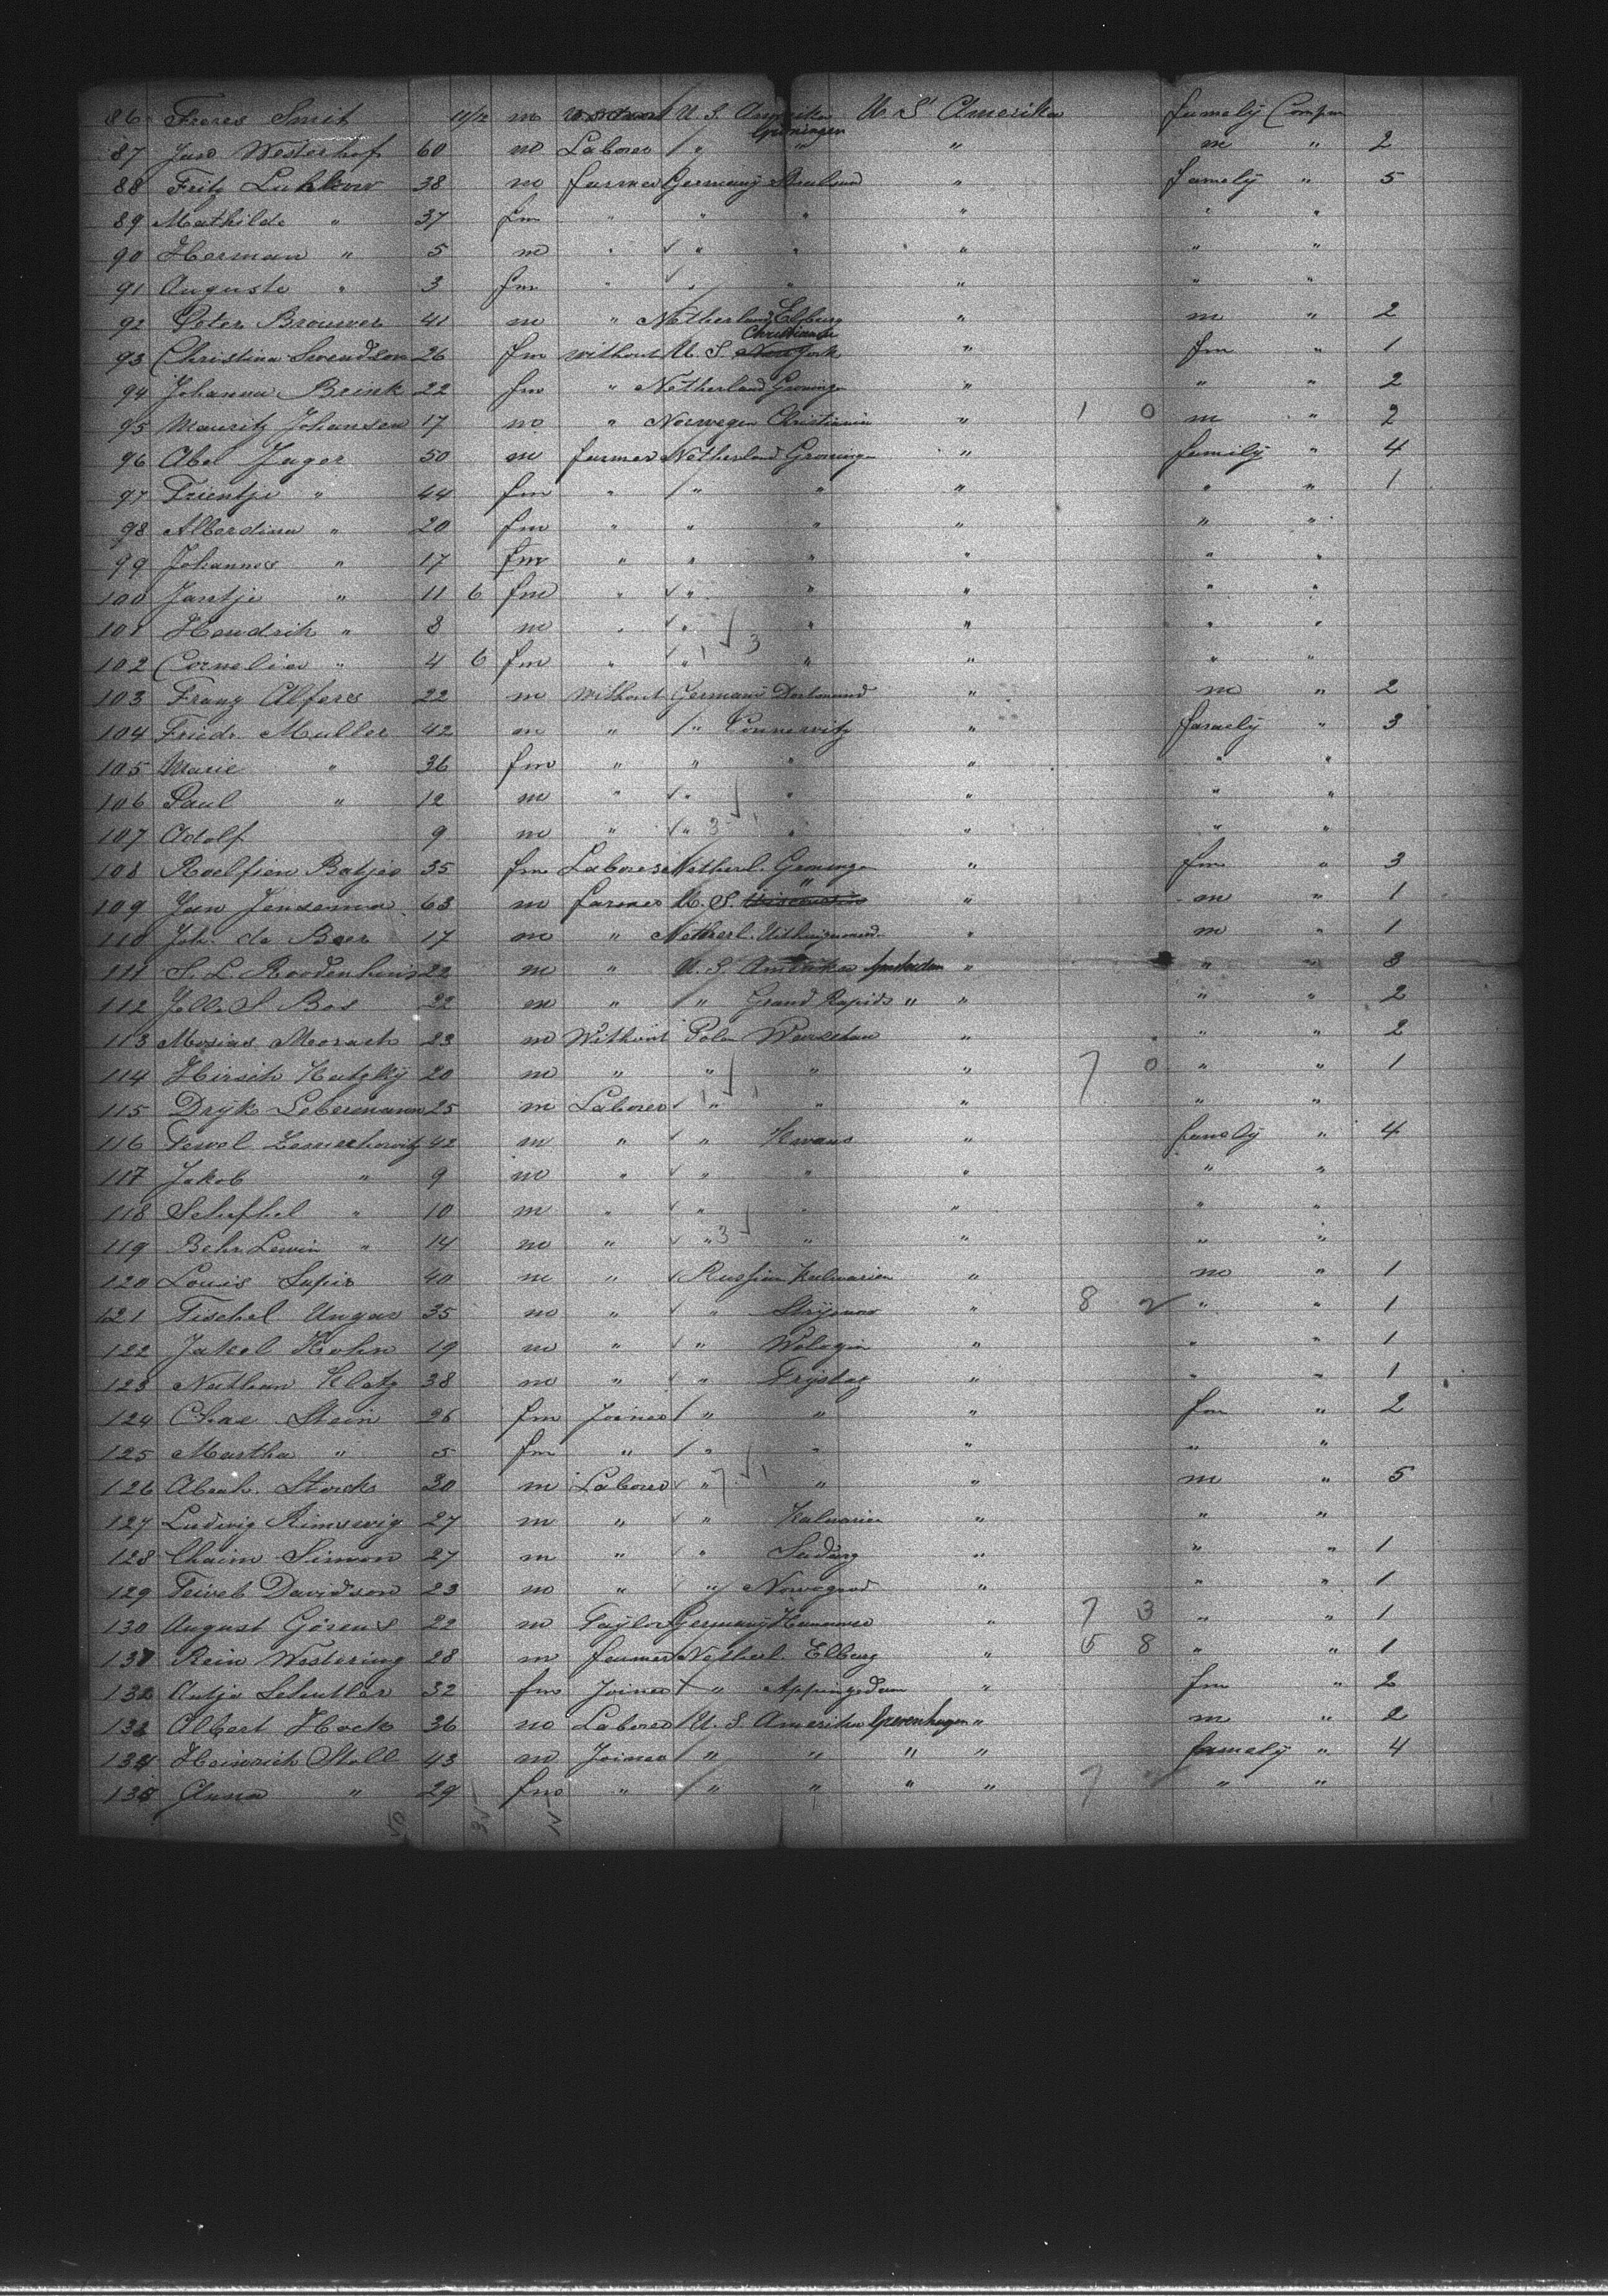 86 Freres Smit 11/12 m without U. S. Amerika U. S. Amerika famely Compm
87 Jan Westerhof 60 m Laborer " Groningen " " m " 2
88 Fritz Luhkow 38 m farmer Germany Stralsund " famely " 5
89 Mathilde " 37 fm " " " " " "
90 Herman " 5 m " " " " " "
91 Auguste " 3 fm " " " " " "
92 Peter Brouwer 41 m " Netherland Elburg " m " 2
93 Christina Swendson 26 fm without U. S. New York Christiania " fm " 1
94 Johanna Brink 22 fm " Netherland Groningen " " " 2
95 Mauritz Johansen 17 m " Norwegen Christiania " 1 0 m " 2
96 Abel Juger 50 m farmer Netherland Groningen " family " 4
97 Trientje " 44 fm " " " " " " 1
98 Alberdina " 20 fm " " " " " "
99 Johannes " 17 fm " " " " " "
100 Jantje " 11 6 fm " " " " " "
101 Hendrik " 8 m " " " " " "
102 Cornelia " 4 6 fm " " 1 3 " " " "
103 Franz Alferes 22 m without Germany Dortmund " m " 2
104 Friedr. Muller 42 m " " Connewitz " famely " 3
105 Marie " 36 fm " " " " " "
106 Paul " 12 m " " " " " "
107 Adolf 9 m " " 3 1 " " " "
108 Roelfien Batjes 35 fm Laborer Netherl. Groningen " fm " 3
109 Jan Jensema 63 m farmer U. S. Wisconsin " " m " 1
110 Joh. de Boer 17 m " Netherl. " m " 1
111 S. L. Roodenhuis 22 m " U. S. Amerika Amsterdam " " " 3
112 Jelle S Bos 22 m " " Grand Rapids " " " " 2
113 Mosias Morach 23 m Without Polen Warschau " " " 2
114 Hirsch Hatzky 20 m " " " " 7 0 " " 1
115 Dryk Lebermann 25 m Laborer " 1 1 " " " "
116 Fewel 42 m " " " famely " 4
117 Jakob " 9 m " " " " " "
118 Schifhel " 10 m " " " " " "
119 Behr Lewin " 14 m " " 3 " " " "
120 Louis Sapir 40 m " Russian Kalwarien m " 1
121 Fischel Ungar 35 m " " " 8 2 " " 1
122 Jakel Kohn 19 m " " Wologin " " " 1
123 Nathan Klatz 38 m " " " " " 1
124 Chae Stein 26 fm Joiner " " " fm " 2
125 Martha " 5 fm " " " " " "
126 Abrah. Storch 30 m Laborer " 7 1 " " m " 5
127 Ludwig Rimswig 27 m " " Kalwarien " " "
128 Chaim Simon 27 m " " " " " 1
129 Feiveb Davidson 23 m " " Nowegrod " " " 1
130 August Görens 22 m Taylor Germany Hannover " 7 3 " " 1
131 Rein Westering 28 m farmer Netherl. Elburg " 5 8 " " 1
132 Antje Schutler 32 fm Joiner " Appingedam " fm " 2
133 Albert Hock 36 m Laborer U. S. Amerika " m " 2
134 Heinrich Stoll 43 m Joiner " " " " famely " 4
135 Anna " 29 fm " " " " " 7 " "